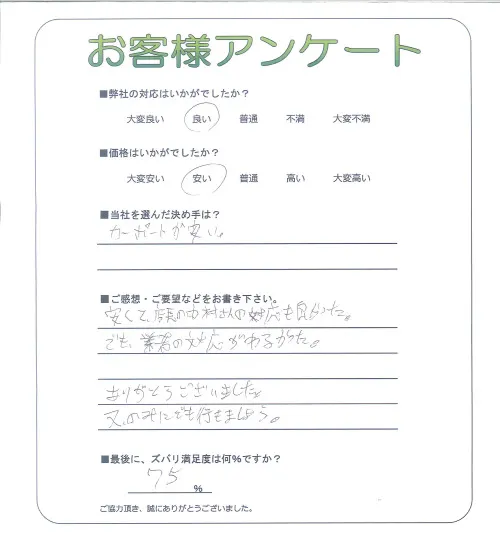 お客様アンケート
■弊社の対応はいかがでしたか？
大変良い 良い 普通 不満 大変不満
■価格はいかがでしたか？
大変安い 安い 普通 高い 大変高い
■当社を選んだ決め手は？
カーポートが安い。
■ご感想・ご要望などをお書き下さい。
安くて、店長の中村さんの対応も良かった。
でも、業者の対応がわるかった。
ありがとうございました。
又、のみにでも行きましょう。
■最後に、ズバリ満足度は何%ですか？
75
%
ご協力頂き、誠にありがとうございました。